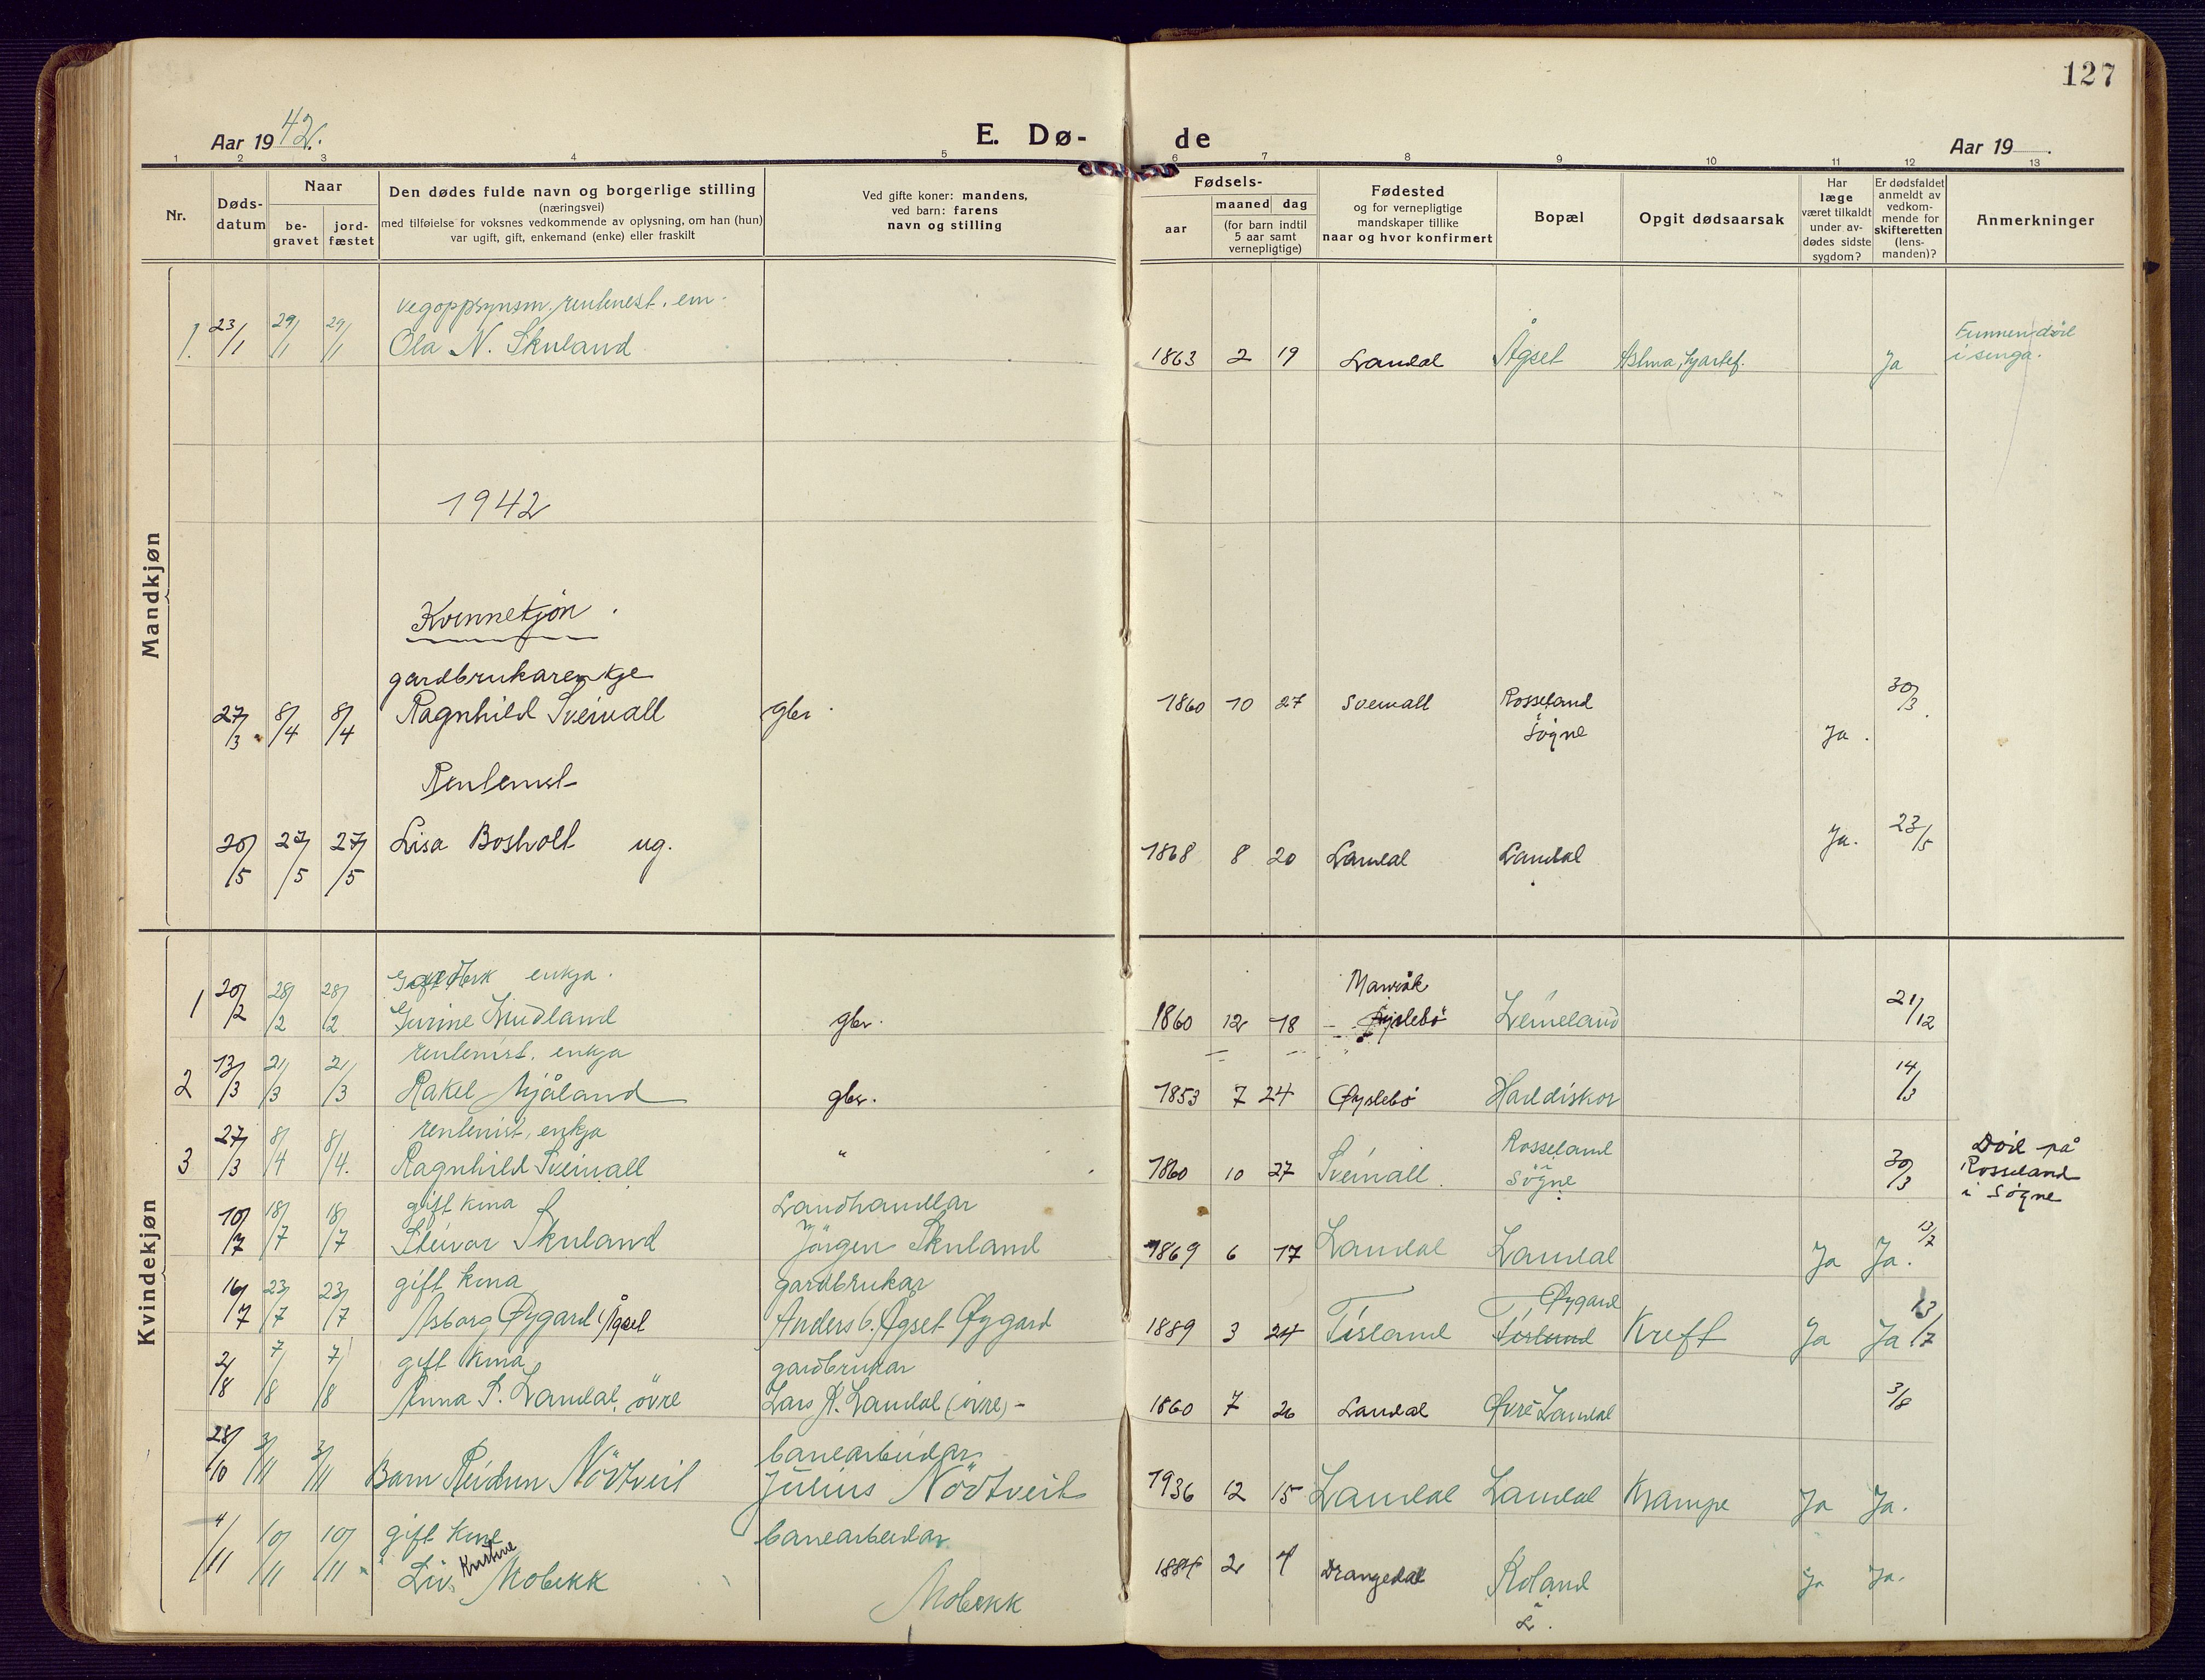 127
Aar 1942.
E. Dø-
de
Aar 19 .
1 2 3 4 5 6 7 8 9 10 11 12 13
Nr.
Døds-
datum
Naar
be-
gravet
jord-
fæstet
Den dødes fulde navn og borgerlige stilling
(næringsvei)
med tilføielse for voksnes vedkommende av oplysning, om han (hun)
var ugift, gift, enkemand (enke) eller fraskilt
Ved gifte koner: mandens,
ved barn: farens
navn og stilling
Fødsels-
aar
maaned dag
(for barn indtil
5 aar samt
vernepligtige)
Fødested
og for vernepligtige
mandskaper tillike
naar og hvor konfirmert
Bopæl
Opgit dødsaarsak
Har
læge
været tilkaldt
under av-
dødes sidste
sygdom?
Er dødsfaldet
anmeldt av
vedkom-
mende for
skifteretten
(lens-
manden)?
Anmerkninger
Mandkjøn
vegoppsynsm. rentenest. em.
1. 23/1 29/1 29/1 Ola N. Skuland 1863 2 19 Laudal Ågset Astma, hjartef. Ja
Funnen død
i senga.
1942
Kvinnekjön.
gardbrukarenkje
27/3 8/4 8/4 Ragnhild Sveinall gbr. 1860 10 27 Sveinall Rosseland
Søgne Ja. 30/3
Rentenist
20/5 27/5 27/5 Lisa Bosholt ug. 1868 8 20 Laudal Laudal Ja. 23/5
Kvindekjøn
enkja.
1 20/2 28/2 28/2 Gurine gbr. 1860 12 18 Øyslebö 21/12
rentenist. enkja
2 13/3 21/3 21/3 Rakel Mjåland gbr. 1853 7 24 Øyslebö 14/3
rentenist, enkja
3 27/3 8/4 8/4. Ragnhild Sveinall " 1860 10 27 Sveinall. Rosseland
Søgne 30/3
Död på
Rosseland
i Søgne
gift kona Landhandlar
10/7 18/7 18/7 Steinvor Skuland Jörgen Skuland 1869 6 17 Laudal Laudal Ja Ja. 13/7
gift kona gardbrukar
16/7 23/7 23/7 Asborg Øygard (Ågset Anders G. Ågset Øygard 1889 3 24 Tisland Øygard
Tisland Kreft Ja Ja 13/7
gift kona gardbrukar
2/8 7/8 7/8 Anna S. Laudal, övre Lars A. Laudal (övre) - 1860 7 26 Laudal Øvre Laudal 3/8
banearbeidar
28/10 3/11 3/11 Barn Reidun Nödtveit Julius Nödtveit 1936 12 15 Laudal Laudal Krampe Ja Ja.
gift kona banearbeidar
4/11 10/11 10/11 Liv Kristine Mobekk Mobekk 1884 2 4 Drangedal Roland
L. Ja Ja.